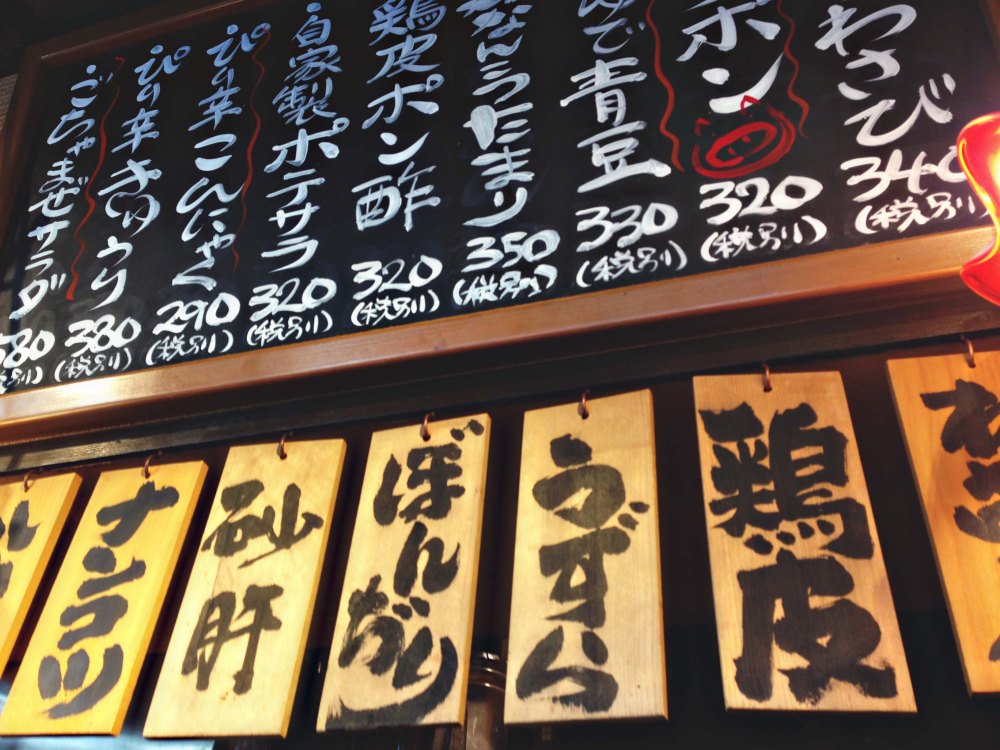 わさび
340
(税別)
ポン
320
(税別)
ゆで青豆
330
(税別)
350
(税別)
鶏皮ポン酢
320
(税別)
自家製ポテサラ
320
(税別)
ぴり辛こんにゃく
290
(税別)
ぴり辛きゅうり
380
(税別)
ごちゃまぜサラダ
580
(税別)
鶏皮
うずら
ぼんぢり
砂肝
ナンコツ